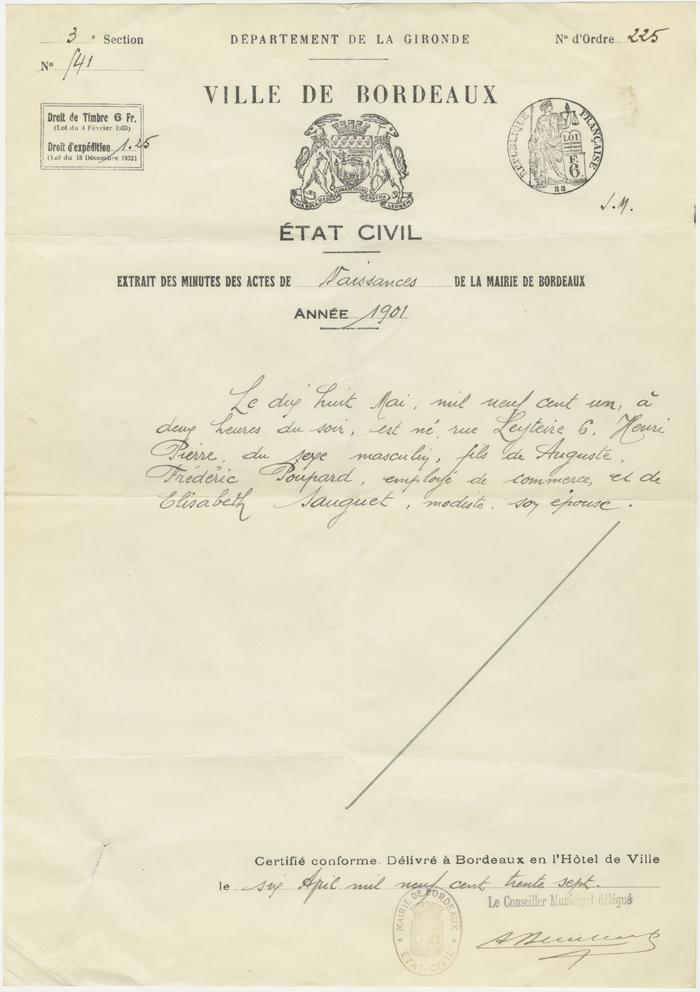 3e Section
DÉPARTEMENT DE LA GIRONDE
N° d'Ordre 225
N° 541
VILLE DE BORDEAUX
Droit de Timbre 6 Fr.
(Loi du 4 Février 1933)
Droit d'expédition 1.25
(Loi du 18 Décembre 1922)
RÉPUBLIQUE FRANÇAISE
LOI
F.
6.
33
J.M.
ÉTAT CIVIL
EXTRAIT DES MINUTES DES ACTES DE Naissances DE LA MAIRIE DE BORDEAUX
ANNÉE 1901
Le dix huit Mai, mil neuf cent un, à
deux heures du soir, est né, rue Leyteire 6, Henri
Pierre, du sexe masculin, fils de Auguste,
Frédéric Poupard, employé de commerce, et de
Elisabeth Sauguet, modiste, son épouse.
Certifié conforme. Délivré à Bordeaux en l'Hôtel de Ville
le six April mil neuf cent trente sept.
MAIRIE DE BORDEAUX
ÉTAT-CIVIL
Le Conseiller Municipal délégué